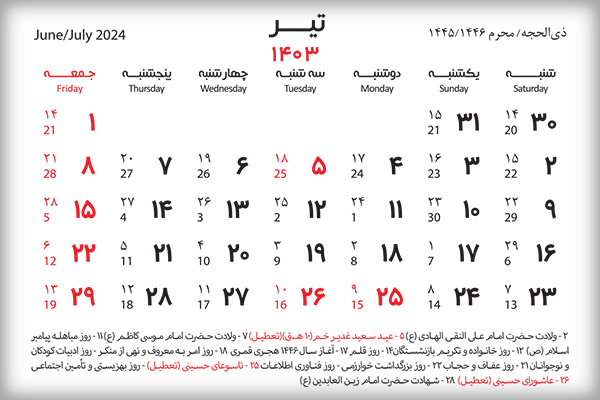 ذی‌الحجه/ محرم ۱۴۴۵/۱۴۴۶
تیر
۱۴۰۳
June/July 2024
شنبه یکشنبه دوشنبه سه شنبه چهارشنبه پنجشنبه جمعه
Saturday Sunday Monday Tuesday Wednesday Thursday Friday
۳۰ ۱۴ 20 ۳۱ ۱۵ 21 ۱ ۱۴ 21
۲ ۱۵ 22 ۳ ۱۶ 23 ۴ ۱۷ 24 ۵ ۱۸ 25 ۶ ۱۹ 26 ۷ ۲۰ 27 ۸ ۲۱ 28
۹ ۲۲ 29 ۱۰ ۲۳ 30 ۱۱ ۲۴ 1 ۱۲ ۲۵ 2 ۱۳ ۲۶ 3 ۱۴ ۲۷ 4 ۱۵ ۲۸ 5
۱۶ ۲۹ 6 ۱۷ ۱ 7 ۱۸ ۲ 8 ۱۹ ۳ 9 ۲۰ ۴ 10 ۲۱ ۵ 11 ۲۲ ۶ 12
۲۳ ۷ 13 ۲۴ ۸ 14 ۲۵ ۹ 15 ۲۶ ۱۰ 16 ۲۷ ۱۱ 17 ۲۸ ۱۲ 18 ۲۹ ۱۳ 19
۲ - ولادت حضرت امام علی النقی الهادی (ع) ۵ - عید سعید غدیر خم(۱۰ هـ.ق)(تعطیل) ۷ - ولادت حضرت امام موسی کاظم (ع) ۱۱ - روز مباهله پیامبر
اسلام (ص) ۱۲ - روز خانواده و تکریم بازنشستگان۱۴ - روز قلم ۱۷ - آغاز سال ۱۴۴۶ هجری قمری ۱۸ - روز امر به معروف و نهی از منکر - روز ادبیات کودکان
و نوجوانان ۲۱ - روز عفاف و حجاب ۲۲ - روز بزرگداشت خوارزمی - روز فناوری اطلاعات ۲۵ - تاسوعای حسینی (تعطیل) - روز بهزیستی و تأمین اجتماعی
۲۶ - عاشورای حسینی (تعطیل) ۲۸ - شهادت حضرت امام زین العابدین (ع)